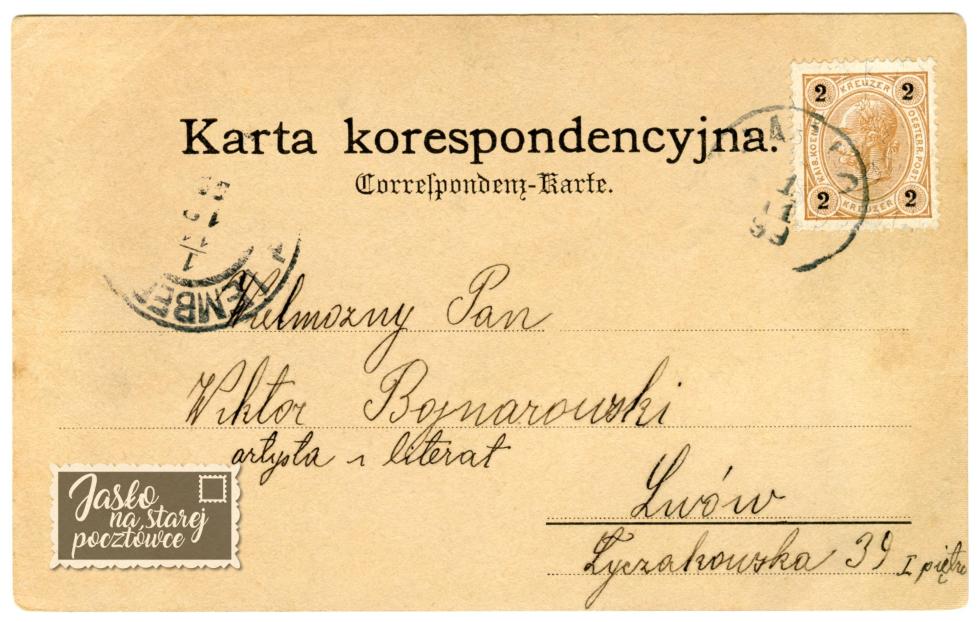 Karta korespondencyjna.
Correspondenz-Karte.
2 KREUZER 2
KAIS. KOEN. OESTERR. POST
2 KREUZER 2
1
11
99
LEMBE
Wielmozny Pan
Wiktor Bojnarowski
artysta i literat
Lwów
Łyczakowska 39 I piętro
Jasło
na starej
pocztówce